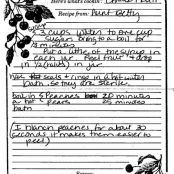 Here's what's cookin'
Recipe from: Aunt Betty
3 cups water to one cup
sugar. bring to a boil for
5 minutes
Put a little of the syrup in
each jar. Feed fruit + drop
in 1/2 (halves) in jar
Wash seals + rings in a hot water
bath, so they are sterile
boil in 5 Peaches 20 minutes
a hot + pears 25 minutes
bath
I blanch peaches for about 30
seconds it makes them easier to
peel)